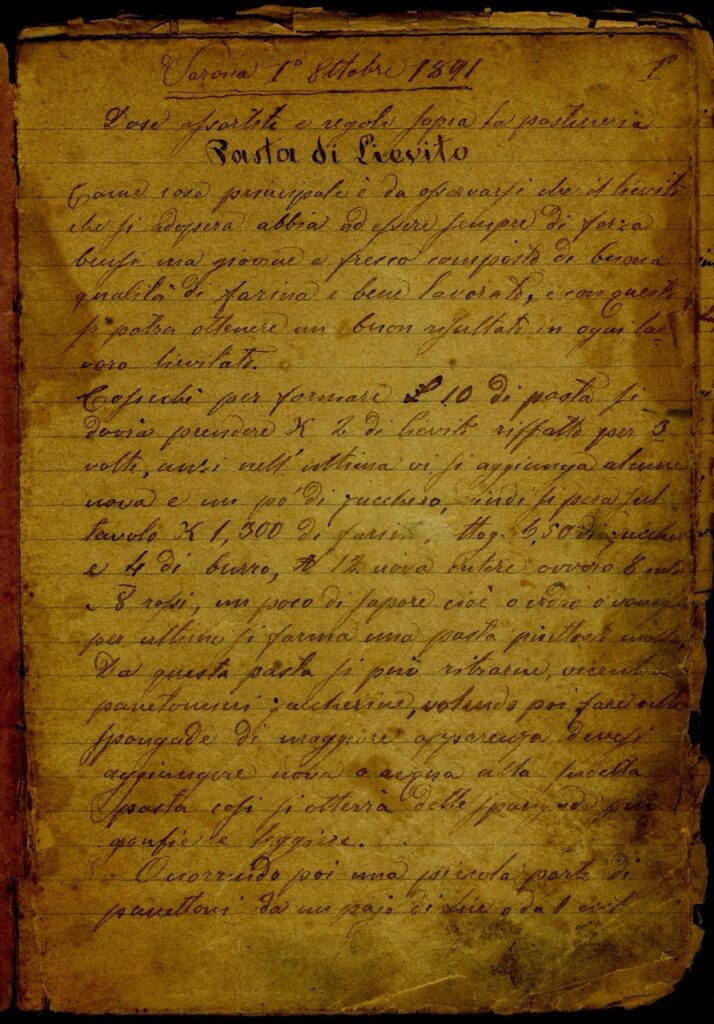 Verona 1° Ottobre 1891
1°
Dose assortite e regole sopra la pasticeria
Pasta di Lievito
Come cosa principale è da osservarsi che il lievito
che si adopera abbia ad essere sempre di forza
bensi ma giovine e fresco composto di buona
qualità di farina e bene lavorato, e con questo
si potra ottenere un buon resultato in ogni la-
voro lievitato.
Cosichè per formare 10 di pasta si
dovrà prendere K 2 di lievito riffatto per 3
volte, anzi nell' ultima vi si aggiunga alcune
nova e un pó di zucchero, indi si pesa sul
tavolo K 1,300 di farina, ttog. 6,50 di zucchero
e 4 di burro, 12 nova intere ovvero 8
e 8 rossi, un poco di sapore cioè o cedro o
per ultimo si farma una pasta piuttosto molle,
Da questa pasta si può ritrarne,
panetoncini zucherine, volendo poi fare delle
spongade di maggiore apparenza devesi
aggiungere nova o acqua alla sudetta
pasta cosi si otterrà delle spongade più
gonfie e leggiere.
Ocorrendo poi una picola parte di
panettoni da un pajo di Lire o da 1